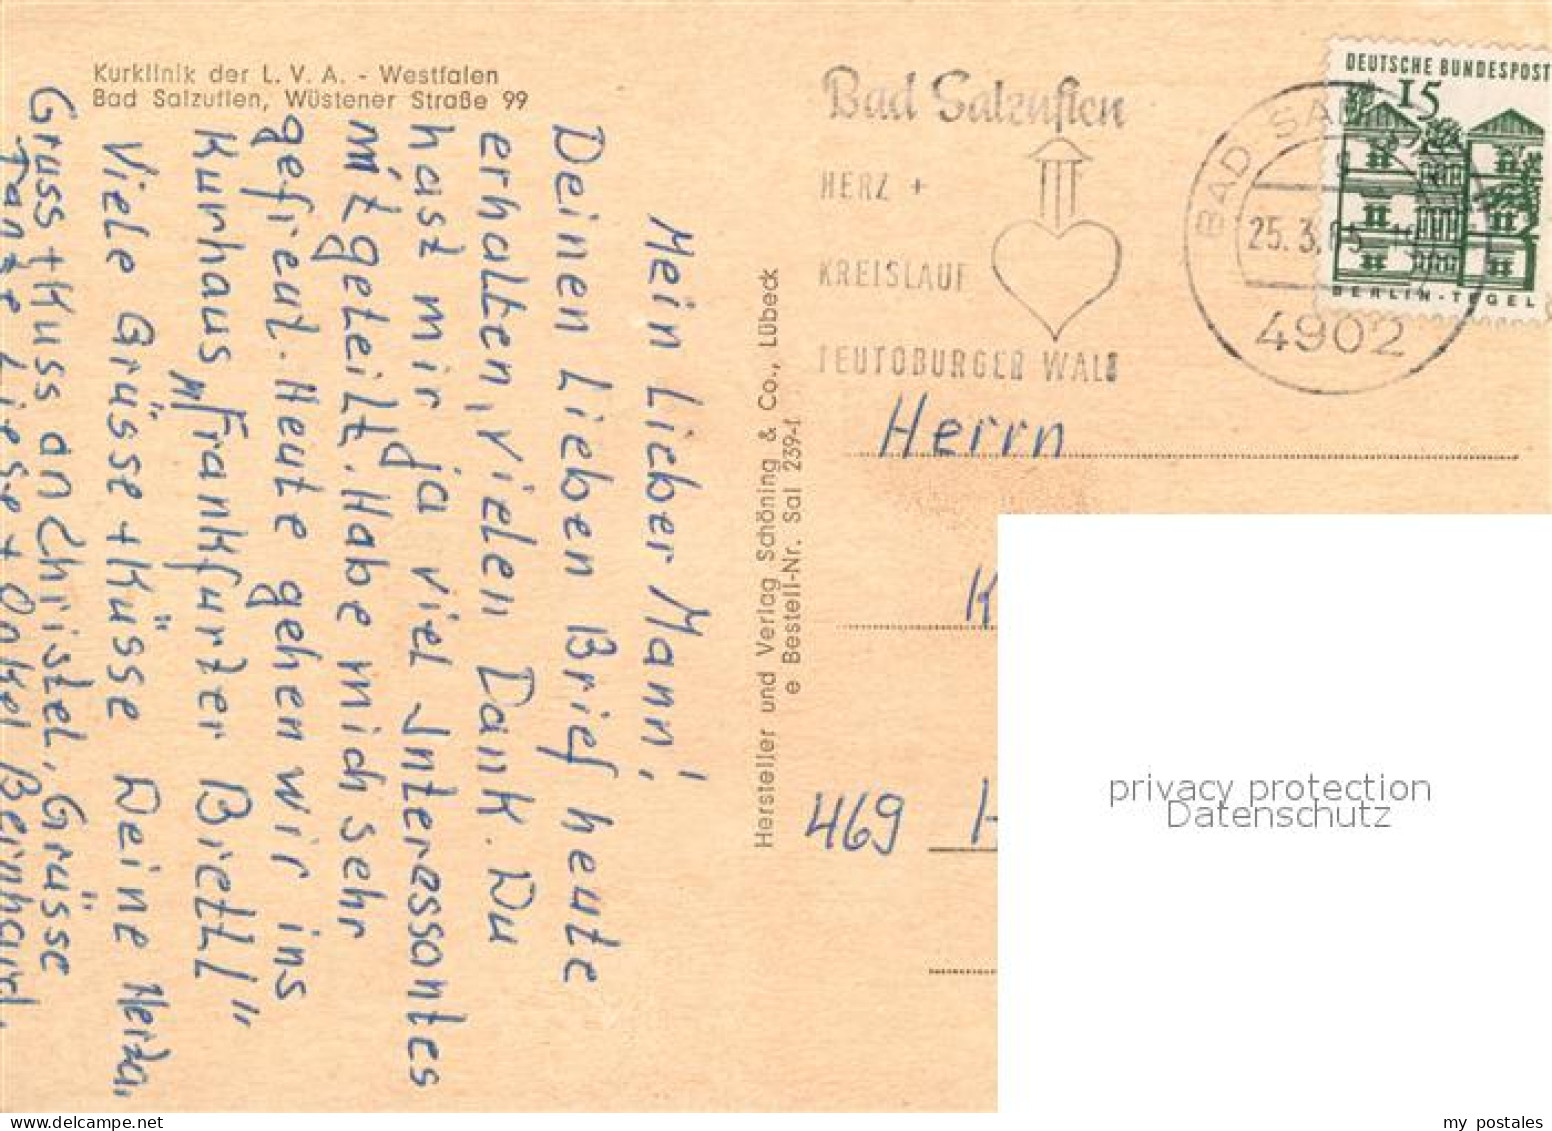 Kurklinik der L. V. A. - Westfalen
Bad Salzuflen, Wüstener Straße 99
Mein Lieber Mann!
Deinen Lieben Brief heute
erhalten, vielen Dank. Du
hast mir ja viel Interessantes
mitgeteilt. Habe mich sehr
gefreut. Heute gehen wir ins
Kurhaus „Frankfurter Brettl"
Viele Grüsse + Küsse Deine Herta.
Gruss + Kuss an Christel, Grüsse
Tante Liese + Onkel Bernhard.
Hersteller und Verlag Schöning & Co., Lübeck
e Bestell-Nr. Sal 239-t
Bad Salzuflen
HERZ +
KREISLAUF
TEUTOBURGER WALD
BAD SAL
25. 3. 65
4902
DEUTSCHE BUNDESPOST
15
BERLIN-TEGEL
Herrn
K
469 H
privacy protection
Datenschutz
my postales